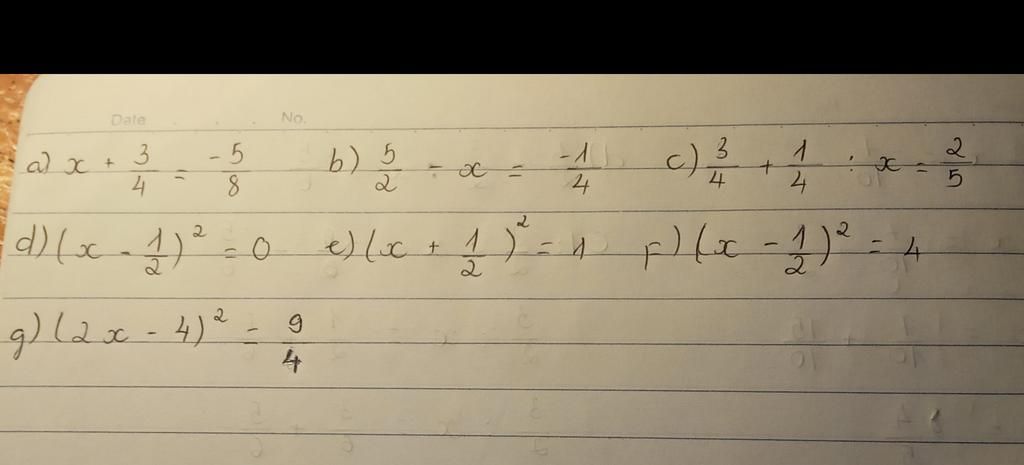 Date . . . No.
a) x + 3/4 = -5/8 b) 5/2 - x = -1/4 c) 3/4 + 1/4 : x = 2/5
d) (x - 1/2)² = 0 e) (x + 1/2)² = 1 F) (x - 1/2)² = 4
g) (2x - 4)² = 9/4